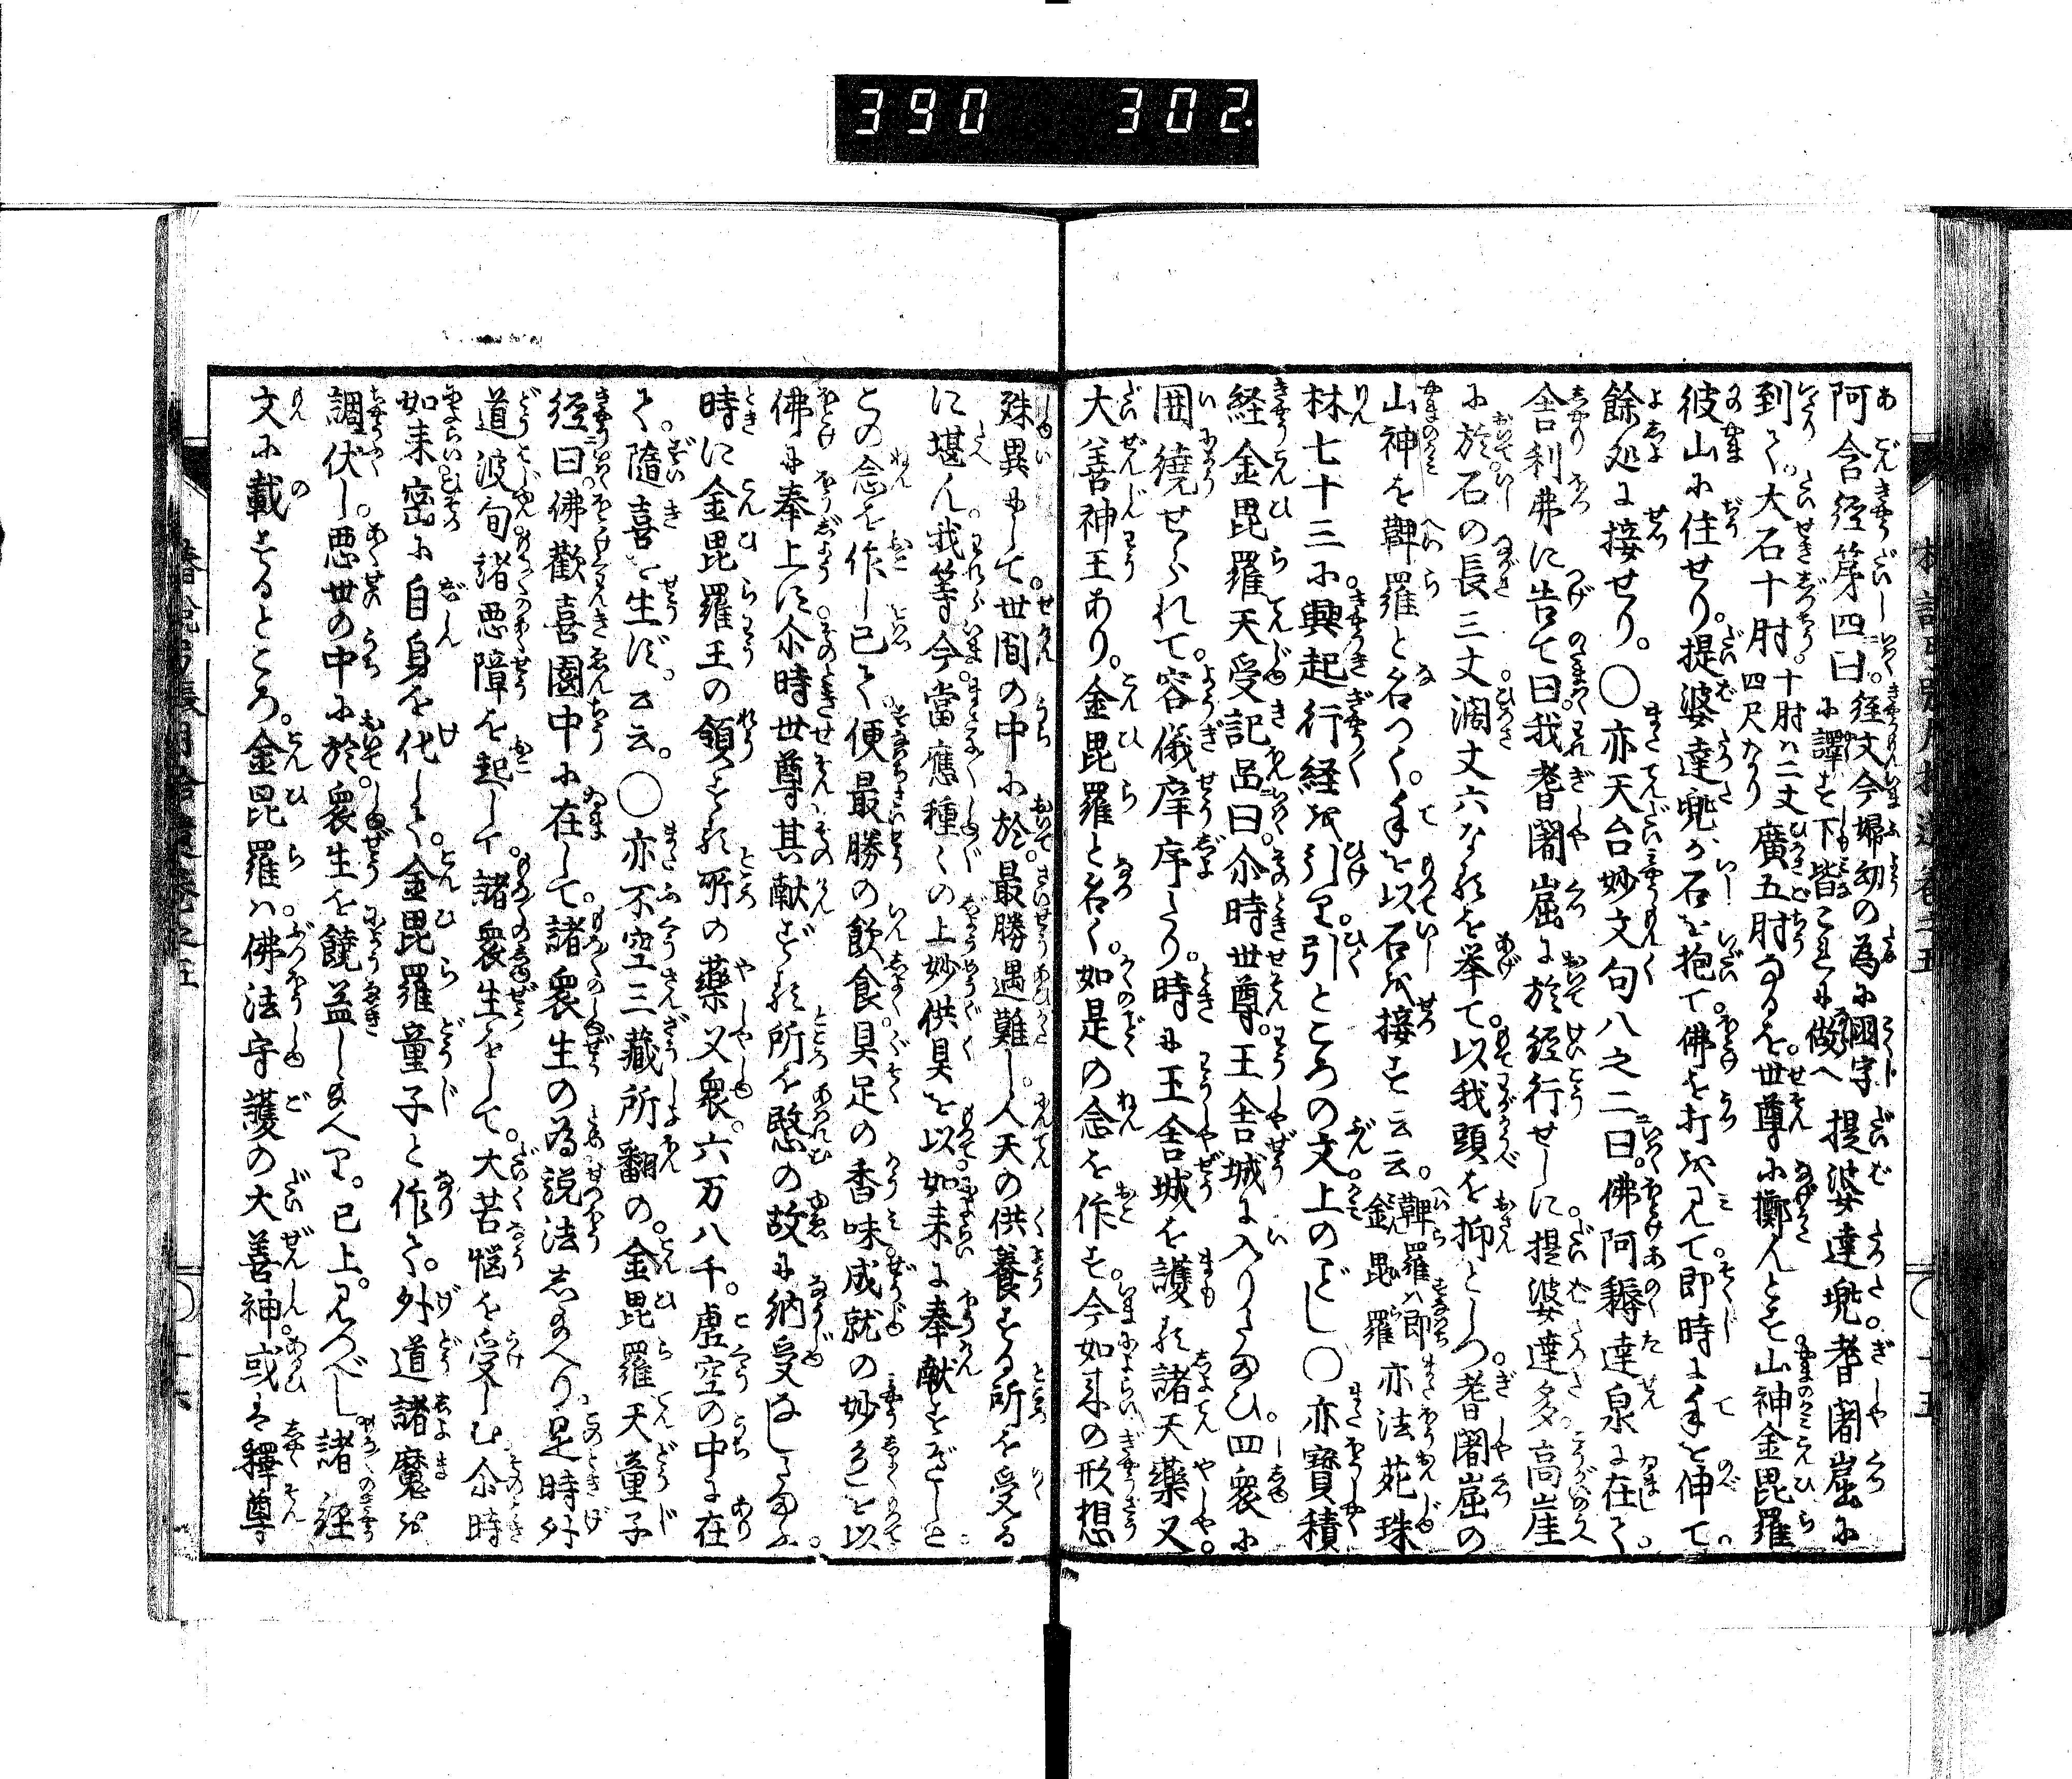 390 302.
阿含経第四曰。経文今婦幼の為に國字に譯す下皆これに做へ 提婆達兜。耆闍崛に
到て。大石十肘。十肘ハ二丈四尺なり 廣五肘なるを。世尊に擲んとす。山神金毘羅
彼山に住せり。提婆達兜が石を抱て。佛を打を見て。即時に手を伸て。
餘処に接せり。○亦天台妙文句八之二曰。佛阿耨達泉に在て。
舎利弗に告て曰我耆闍崛に於経行せしに。提婆達多。高崖
に於。石の長三丈。濶丈六なるを挙て。以我頭を抑としつ。耆闍崛の
山神を鞞羅と名つく。手を以石を接す云云。鞞羅ハ即金毘羅 亦法苑珠
林七十三に。興起行経を引り。引ところの文。上のごとし○亦寳積
経金毘羅天受記品曰。尒時世尊。王舎城に入りたまひ。四衆に
囲繞せられて。容儀庠序たり。時に王舎城を護る諸天藥叉。
大善神王あり。金毘羅と名く。如是の念を作す。今如来の形想
殊異にして。世間の中に於。最勝遇難し。人天の供養する所を受る
に堪ん。我等今。當應種々の上妙供具を以如来に奉献すべしと。
この念を作し已て。便最勝の飲食。具足の香味。成就の妙色を以
佛に奉上す。尒時世尊其献ずる所を愍の故に納受なしたまふ。
時に金毘羅王の領する所の藥叉衆。六万八千。虚空の中に在
て。隨喜を生ず。云云。○亦不空三藏所翻の。金毘羅天童子
経曰。佛歡喜園中に在して。諸衆生の為説法したまへり。是時外
道波旬。諸悪障を起して。諸衆生をして。大苦悩を受しむ。尒時
如来密に自身を化して。金毘羅童子と作て。外道諸魔を
調伏し。悪世の中に於。衆生を饒益したまへり。已上。見つべし。諸経
文に載するところ。金毘羅ハ。佛法守護の大善神。或は釋尊